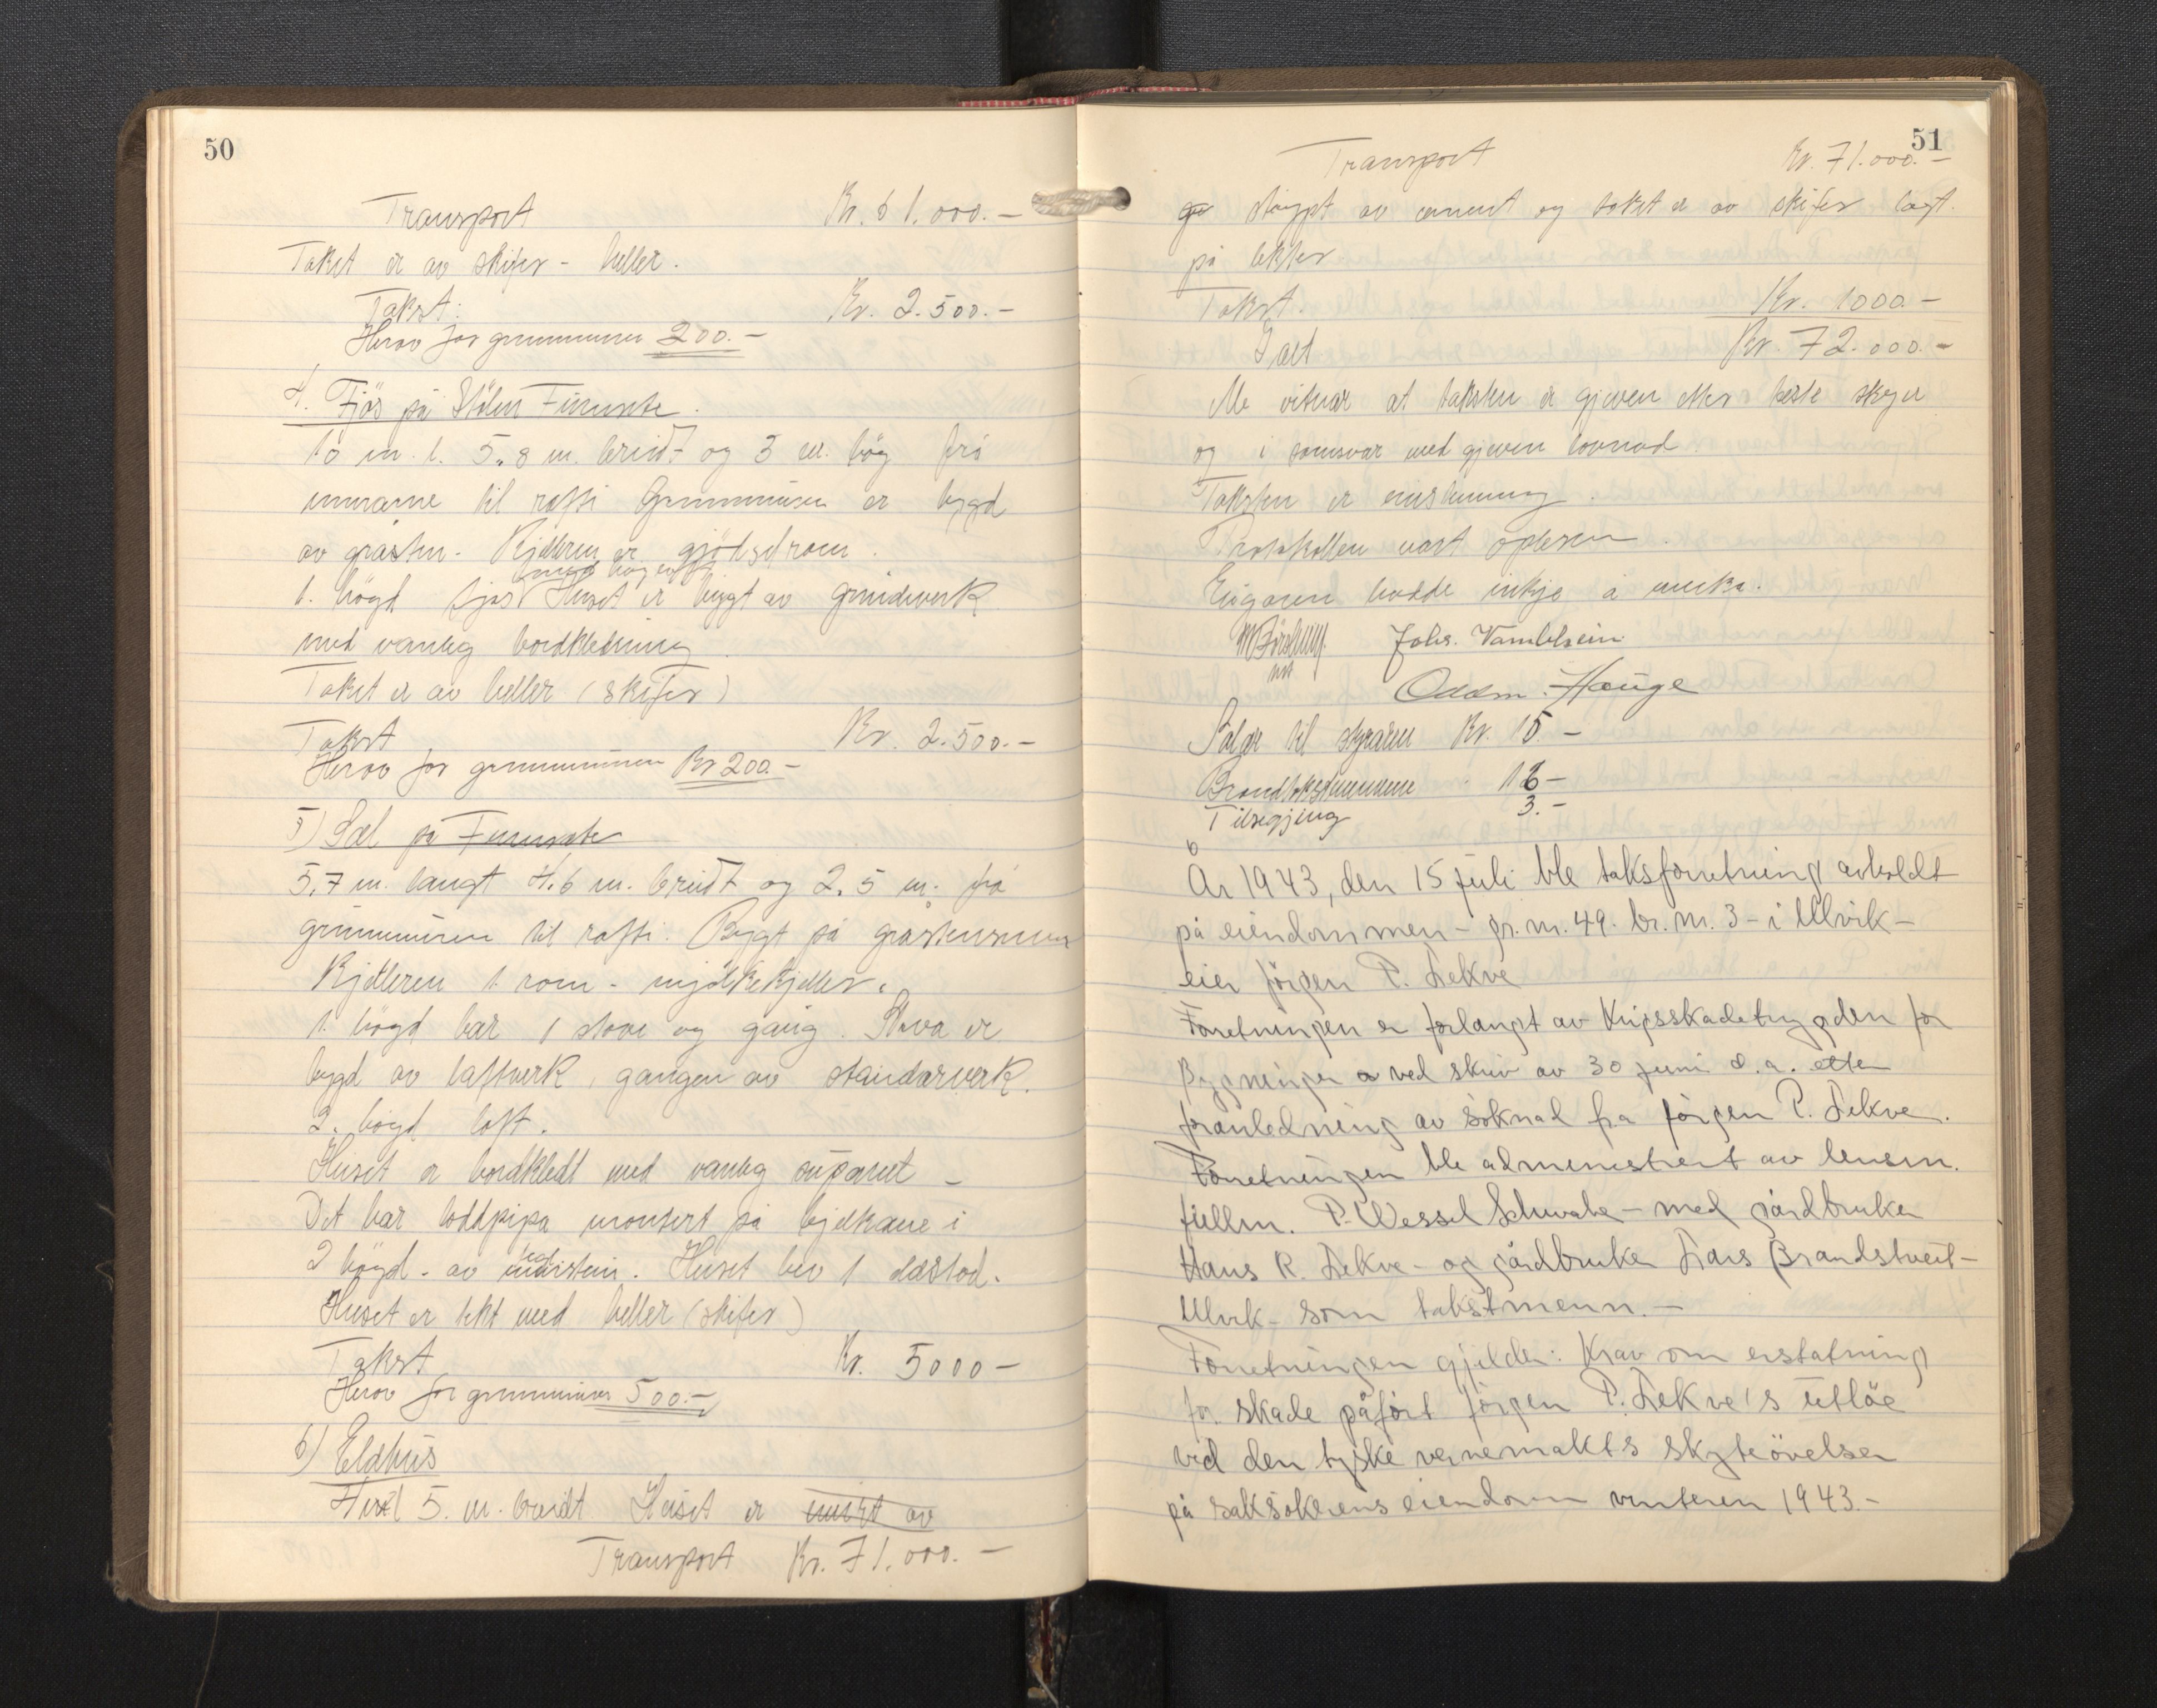 50
Transport Kr. 61.000.-
Taket er av skifer - heller.
Takst: Kr. 2.500.-
Herav for grunnmuren 200.-
4. Fjös på Stölen Finnsete.
10 m. l. 5,8 m. breidt og 3 m. hög frå
murane til rafti Grunnmuren er bygd
av gråstein. Kjelleren er gjödselrom.
med höyloft
1. högd fjös Huset er bygt av grindverk
med vanleg bordkledning.
Taket er av heller (skifer)
Takst Kr. 2.500.-
Herav for grunnmuren Kr 200.-
5) Sel på Finnsete
5,7 m. langt 4,6 m. breidt og 2,5 m. frå
grunnmuren til rafti. Bygt på gråsteinsmur
Kjelleren 1 rom - mjölkekjeller.
1. högd har 1 stove og gang. Stova er
bygd av laftverk, gangen av standarverk.
2. högd loft.
Huset er bordkledt med vanleg
Det har loddpipa montert på bjelkane i
2 högd - av teglstein. Huset hev 1 eldstad.
Huset er tekt med heller (skifer)
Takst Kr. 5000-
Herav for grunnmuren 500.-
6) Eldhus
5. m. breidt Huset er murt av
Transport Kr. 71.000.-
51
Transport Kr. 71.000.-
støypt av cement og taket er av skifer lagt.
på lekter
Takst. Kr. 1000.-
I alt Kr. 72.000.-
Me vitnar at taksten er gjeven etter beste skyn
og i samsvar med gjeven lovnad.
Taksten er einstemmig.
Protokollen vart opplesen.
Eigaren hadde inkje å merka.
Johs. Vambheim
Oddm. Hauge
Salær til styraren Kr. 15.-
Brandtakstmennene 16-
Tilsegjing 3.-
År 1943, den 15 juli ble taksforretning avholdt
på eiendommen - gr. nr. 49. br. nr. 3 - i Ulvik -
eier Jörgen P. Lekve
Forretningen er forlangt av Krigsskadetrygden for
Bygninger ved skriv av 30 juni d.a. etter
foranledning av söknad fra Jörgen P. Lekve.
Forretningen ble administrert av lensm.
fullm. P. Wessel Schwabe - med gårdbruker
Hans R. Lekve - og gårdbruker Lars Brandstveit -
Ulvik - som takstmenn. -
Forretningen gjelder: Krav om erstatning
for skade påfört Jörgen P. Lekve's utlöe
ved den tyske vernemakts skyteövelser
på saksökerens eiendom vinteren 1943.-